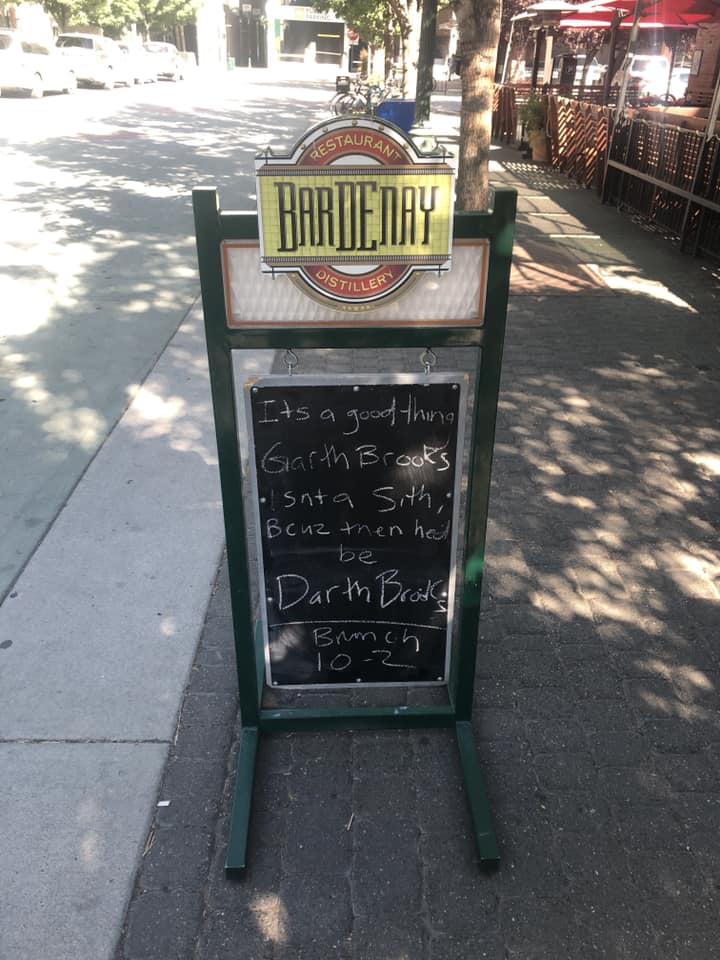 RESTAURANT
BARDENAY
DISTILLERY
Its a good thing
Garth Brooks
Isnt a Sith,
Bcuz then he'd
be
Darth Brooks
Brunch
10-2